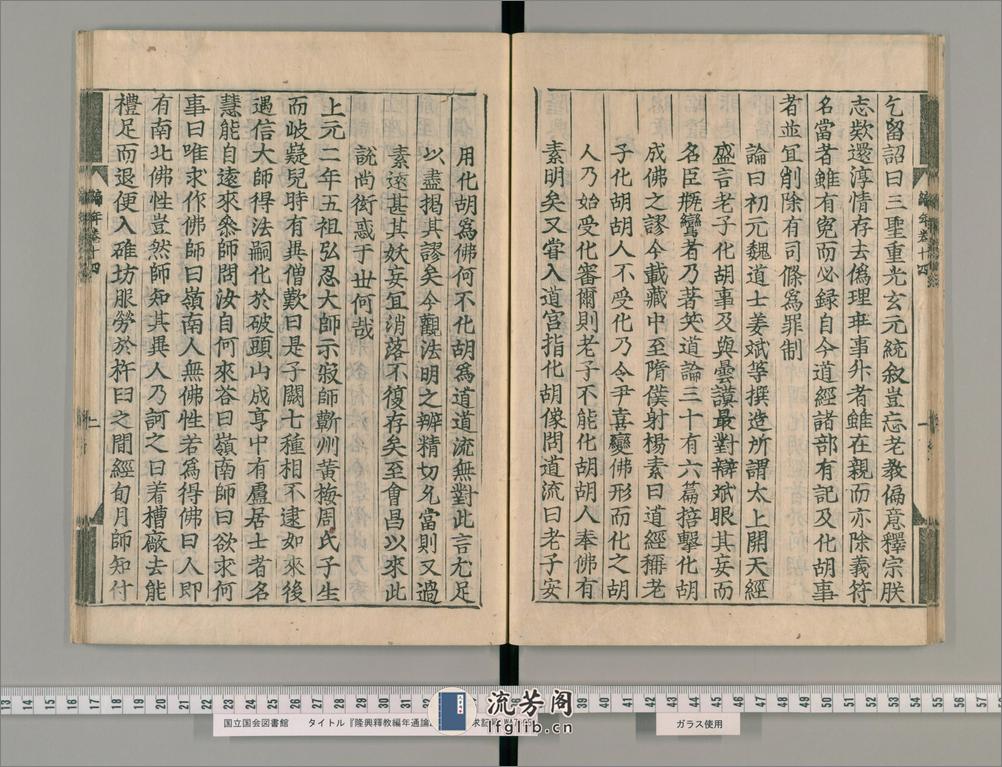 乞畱詔曰三聖重光玄元統叙豈忘老教偏意釋宗朕
志欵還淳情存去偽理乖事舛者雖在親而亦除義符
名當者雖有寃而必録自今道經諸部有記及化胡事
者並冝削除有司條爲罪制
論曰初元魏道士姜斌等撰造所謂太上開天經
盛言老子化胡事及與曇謨最對辯斌眼其妄而
名臣甄鸞者乃著笑道論三十有六篇掊擊化胡
成佛之謬今載藏中至隋僕射楊素曰道經稱老
子化胡胡人不受化乃令尹喜變佛形而化之胡
人乃始受化審爾則老子不能化胡胡人奉佛有
素明矣又甞入道宫指化胡像問道流曰老子安
編年卷十四
一
用化胡爲佛何不化胡爲道道流無對此言尤足
以盡揭其謬矣今觀法明之辨精切允當則又過
素遠甚其妖妄冝消落不復存矣至會昌以來此
說尚衒惑于世何哉
上元二年五祖弘忍大師示寂師蘄州黄梅周氏子生
而岐嶷兒時有異僧歎曰是子闕七種相不逮如來後
遇信大師得法嗣化於破頭山咸亨中有盧居士者名
慧能自遠來叅師問汝自何來荅曰嶺南師曰欲求何
事曰唯求作佛師曰嶺南人無佛性若爲得佛曰人即
有南北佛性豈然師知其異人乃訶之曰着槽廠去能
禮足而退便入碓坊服勞於杵臼之間經旬月師知付
編年卷十四
二
国立国会図書館 タイトル『隆興釋教編年通論
ガラス使用
流芳阁
lfglib.cn